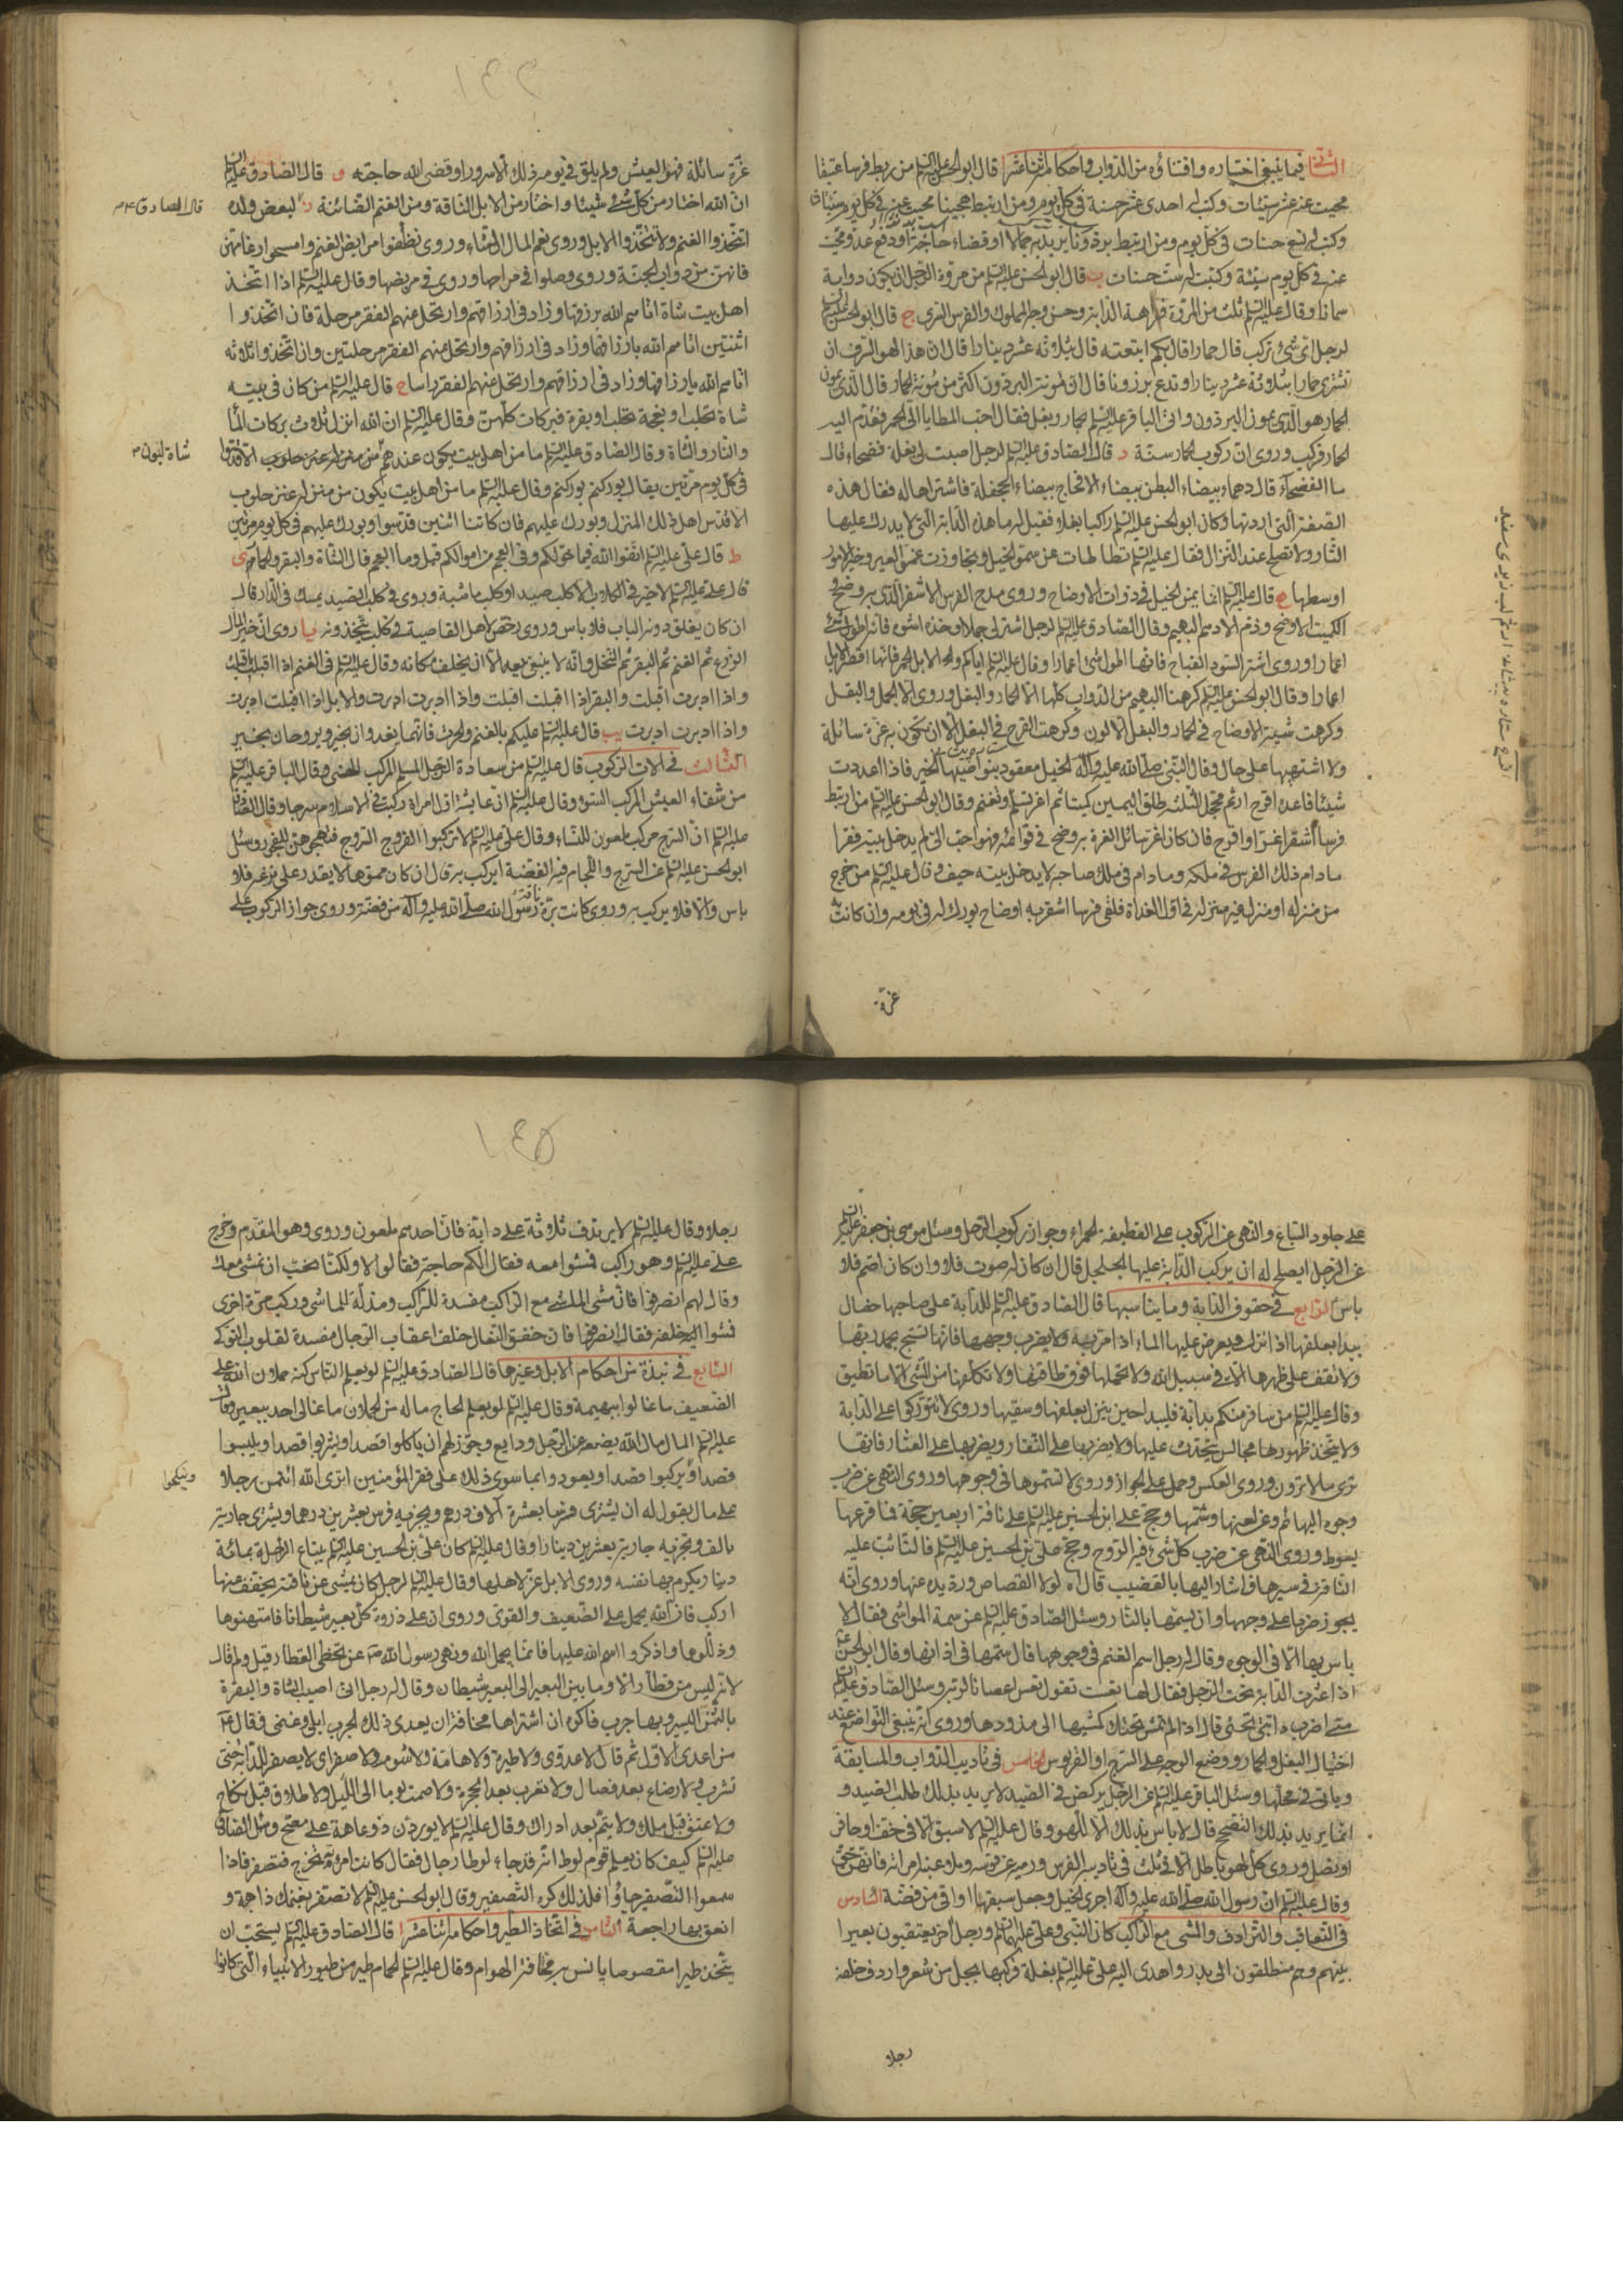 الثانى فيما ينبغى اختياره واقتناؤه من الدواب واحكامه اثنا عشر ا قال ابو الحسن عليه السلم من ربط فرسا عتيقا
محيت عنه عشر سيئات وكتب له احدى عشر حسنة فى كل يوم ومن ارتبط هجينا محيت عنه فى كل يوم سيئتان
وكتب له تسع حسنات فى كل يوم ومن ارتبط برذونا يريد به جمالا او قضاء حاجة او دفع عدو محيت
عنه فى كل يوم سيئة وكتبت له ست حسنات ب قال ابو الحسن عليه السلم من مروة الرجل ان يكون دوابه
سمانا وقال عليه السلم ثلث من المروة فراهة الدابة وحسن وجه المملوك والفرس السرى ج قال ابو الحسن عليه السلم
لرجل اى شئ تركب قال حمارا قال بكم ابتعته قال بثلاثة عشر دينارا قال ان هذا لهو السرف ان
تشترى حمارا بثلاثة عشر دينارا وتدع برذونا قال ان مؤنة البرذون اكثر من مؤنة الحمار قال الذى يمون
الحمار هو الذى يمون البرذون واتى الباقر عليه السلم بحمار وبغل فقال احب المطايا الى الحمر فقدم اليه
الحمار فركب وروى ان ركوب الحمار سنة د قال الصادق عليه السلم لرجل اصبت لى بغلة فضحاء قال
ما الفضحاء قال دهماء بيضاء البطن بيضاء الافحاج بيضاء الجحفلة فاشتراها له فقال هذه
الصفة التى اردتها وكان ابو الحسن عليه السلم راكبا بغلا فقيل له ما هذه الدابة التى لا يدرك عليها
الثار ولا تصلح عند النزال فقال عليه السلم تطاطات عن سمو الخيل وتجاوزت قموء العير وخير الامور
اوسطها ه قال عليه السلم انما يمن الخيل فى ذوات الاوضاح وروى مدح الفرس الاشقر الذى به وضح و
الكميت الاوضح وذم الادهم البهيم وقال الصادق عليه السلم لرجل اشتر لى جملا وخذه اشوه فانه اطول شئ
اعمارا وروى اشتر السود القباح فانها اطول شئ اعمارا وقال عليه السلم اياكم والابل الحمر فانها اقصر الابل
اعمارا وقال ابو الحسن عليه السلم كرهنا البهيم من الدواب كلها الا الحمار والبغل وروى الا الجمل والبغل
وكرهت شية الاوضاح فى الحمار والبغل الالون وكرهت القرح فى البغل الا ان تكون به غرة سائلة
ولا اشتهيها على حال وقال النبى صلى الله عليه وآله الخيل معقود بنواصيها الخير فاذا اعددت
شيئا فاعده اقرح ارثم محجل الثلثة طلق اليمين كميتا ثم اغر تسلم وتغنم وقال ابو الحسن عليه السلم من ارتبط
فرسا اشقر اغر او اقرح فان كان اغر سائل الغرة به وضح فى قوائمه فهو احب الى لم يدخل بيته فقرا
ما دام ذلك الفرس فى ملكه وما دام فى ملك صاحبه لا يدخل بيته حيف و قال عليه السلم من خرج
من منزله او منزل غير منزله فى اول الغداة فلقى فرسا اشقر به اوضاح بورك له فى يومه وان كانت به
غرة
غرة سائلة فهو العيش ولم يلق فى يومه ذلك الا سرورا وقضى الله حاجته و قال الصادق عليه السلم
ان الله اختار من كل شئ شيئا واختار من الابل الناقة ومن الغنم الضائنة ز لبعض ولده
قال الصادق ع م
اتخذوا الغنم ولا تتخذوا الابل وروى نعم المال الشاء وروى نظفوا مرابض الغنم وامسحوا رغامهن
فانهن من دواب الجنة وروى وصلوا فى مراحها وروى فى مربضها وقال عليه السلم اذا اتخذ
اهل بيت شاة اتاهم الله برزقها وزاد فى ارزاقهم وارتحل عنهم الفقر مرحلة فان اتخذوا
اثنتين اتاهم الله بارزاقها وزاد فى ارزاقهم وارتحل عنهم الفقر مرحلتين وان اتخذوا ثلاثه
اتاهم الله بارزاقها وزاد فى ارزاقهم وارتحل عنهم الفقر راسا ح قال عليه السلم من كان فى بيته
شاة تحلب او نعجة تحلب او بقرة فبركات كلهن وقال عليه السلم ان الله انزل ثلاث بركات الماء
والنار والشاة وقال الصادق عليه السلم ما من اهل بيت يكون عندهم الا قدسوا
شاة لبون م
فى كل يوم مرتين يقال بوركتم بوركتم وقال عليه السلم ما من اهل بيت يكون من منزله عنز حلوب
الا قدس اهل ذلك المنزل وبورك عليهم فان كانتا اثنين قدسوا وبورك عليهم فى كل يوم مرتين
ط قال على عليه السلم اتقوا الله فيما خولكم وفى العجم من اموالكم قيل وما العجم قال الشاة والبقر والحمام ى
قال على عليه السلم لا خير فى الكلاب الا كلب صيد او كلب ماشية وروى فى كلب الصيد يمسك فى الدار قال
ان كان يغلق دونه الباب فلا باس وروى رخص لاهل القاصية فى كلب يتخذونه يا روى ان خير المال
الزرع ثم الغنم ثم البقر ثم النخل وانه لا ينبغى بيعه الا ان يخلف مكانه وقال عليه السلم فى الغنم اذا اقبلت اقبلت
واذا ادبرت اقبلت والبقر اذا اقبلت اقبلت واذا ادبرت ادبرت والابل اذا اقبلت ادبرت
واذا ادبرت ادبرت يب قال عليه السلم عليكم بالغنم والحرث فانهما يغدوان بخير ويروحان بخير
الثالث فى آلات الركوب قال عليه السلم من سعادة الرجل المسلم المركب الهنى وقال الباقر عليه السلم
من شقاء العيش المركب السوء وقال عليه السلم ان عابشة اول امراة ركبت فى الاسلام سرجا وقال الصادق
عليه السلم ان السرج مركب ملعون للنساء وقال على عليه السلم لا تركبوا الفروج السروج فتهيجوهن للفجور وسئل
ابو الحسن عليه السلم عن السرج واللجام فيه الفضة ايركب به قال ان كان مموها لا يقدر على نزعه فلا
باس والا فلا يركب به وروى كانت برة ناقة رسول الله صلى الله عليه وآله من فضة وروى جواز الركوب على
على جلود السباع والنهى عن الركوب على القطيفة الحمراء وجواز ركوب الرحل وسئل موسى بن جعفر عليه السلم
عن الرجل ايصلح له ان يركب الدابة عليها الجلجل قال ان كان له صوت فلا وان كان اصم فلا
باس الرابع فى حقوق الدابة وما يناسبها قال الصادق عليه السلم للدابة على صاحبها خصال
يبدا بعلفها اذا نزل ويعرض عليها الماء اذا مر به ولا يضرب وجهها فانها تسبح بحمد ربها
ولا يقف على ظهرها الا فى سبيل الله ولا يحملها فوق طاقتها ولا تكلفها من المشى الا ما تطيق
وقال عليه السلم من سافر منكم بدابة فليبدا حين ينزل بعلفها وسقيها وروى لا تتوركوا على الدابة
ولا تتخذ ظهورها مجالس يتحدث عليها ولا يضربها على النفار ويضربها على العثار فانها
ترى ما لا ترون وروى العكس وحمل على الجواز وروى لا تسموها فى وجوهها وروى النهى عن ضرب
وجوه البهائم وعن لعنها وشتمها وحج على ابن الحسين عليه السلم على ناقة اربعين حجة فما قرعها
بسوط وروى النهى عن ضرب كل شئ فيه الروح وحج على بن الحسين عليه السلم فالتاثت عليه
الناقة فى سيرها فاشار اليها بالقضيب قال اه لولا القصاص ورد يده عنها وروى انه
يجوز ضربها على وجهها وان يسمها بالنار وسئل الصادق عليه السلم عن سمة المواشى فقال لا
باس بها الا فى الوجوه وقال له رجل اسم الغنم فى وجوهها قال سمها فى اذانها وقال ابو الحسن ع
اذا عثرت الدابة تحت الرجل فقال لها تعست تقول تعس اعصانا لربه وسئل الصادق عليه السلم
متى اضرب دابتى تحتى قال اذا لم تمش تحتك كمشيها الى مذودها وروى انه ينبغى التواضع عند
اختيال البغل والحمار ووضع الوجه على السرج او القربوس الخامس فى تاديب الدواب والمسابقة
وياتى فى محلها وسئل الباقر عليه السلم عن الرجل يركض فى الصيد لا يريد بذلك طلب الصيد و
انما يريد بذلك التصحح قال لا باس بذلك الا للهو وقال عليه السلم لا سبق الا فى خف او حافر
او نصل وروى كل لهو باطل الا فى ثلث فى تاديبه الفرس ورميه عن قوسه وملاعبته امراته فانهن حق
وقال عليه السلم ان رسول الله صلى الله عليه وآله اجرى الخيل وجعل سبقها اواقى من فضة السادس
فى التعاقب والترادف والمشى مع الراكب كان النبى وعلى عليهما السلم ورجل آخر يعتقبون بعيرا
بينهم وهم منطلقون الى بدر واهدى اليه على عليه السلم بغلة فركبها بجبل من شعر واردف خلفه
رجلا
رجلا وقال عليه السلم لا يرتدف ثلاثة على دابة فان احدهم ملعون وروى وهو المقدم وخرج
على عليه السلم وهو راكب فمشوا معه فقال الكم حاجة فقالوا لا ولكنا نحب ان نمشى معك
وقال لهم انصرفوا فان مشى الماشى مع الراكب مفسدة للراكب ومذلة للماشى وركب مرة اخرى
فمشوا خلفه فقال انصرفوا فان خفق النعال خلف اعقاب الرجال مفسدة لقلوب النوكى
السابع فى نبذة من احكام الابل وغيرها قال الصادق عليه السلم لو يعلم الناس كنه حملان الله على
الضعيف ما غالوا ببهيمة وقال عليه السلم لو يعلم الحاج ما له من الحملان ما غالى احد ببعير وقال
عليه السلم المال مال الله يضعه عند الرجل ودايع وجوز لهم ان ياكلوا قصدا ويشربوا قصدا ويلبسوا
قصدا ويركبوا قصدا ويعودوا بما سوى ذلك على فقراء المؤمنين اترى الله ائتمن رجلا
وينكحوا
على مال يقول له ان يشترى فرسا بعشرة آلاف درهم ويجزيه فرس بعشرين درهما ويشترى جارية
بالف وتجزيه جارية بعشرين دينارا وقال عليه السلم كان على بن الحسين عليه السلم يبتاع الراحلة بمائة
دينار يكرم بها نفسه وروى الابل عز لاهلها وقال عليه السلم لرجل كان يمشى عن ناقته يخفف عنها
اركب فان الله يحمل على الضعيف والقوى وروى ان على ذروة كل بعير شيطانا فامتهنوها
وذللوها واذكروا اسم الله عليها فانما يحمل الله ونهى رسول الله ص عن تخطى القطار قيل ولم قال
لانه ليس من قطار الا وما بين البعير الى البعير شيطان وقال له رجل انى اصيب الشاة والبقرة
بالثمن اليسير وبها جرب فاكره ان اشتراها مخافة ان يعدى ذلك الجرب ابلى وغنمى فقال ع
من اعدى الاول ثم قال لا عدوى ولا طيرة ولا هامة ولا شوم ولا صفر اى لا يصفر للدابة حتى
تشرب ولا رضاع بعد فصال ولا تعرب بعد الهجرة ولا صمت يوما الى الليل ولا طلاق قبل نكاح
ولا عتق قبل ملك ولا يتم بعد ادراك وقال عليه السلم لا يوردن ذو عاهة على مصح وسئل الصادق
عليه السلم كيف كان يعلم قوم لوط انه قد جاء لوطا رجال فقال كانت امرأته تخرج فتصفر فاذا
سمعوا التصفير جاؤا فلذلك كره التصفير وقال ابو الحسن عليه السلم لا تصفر بغنمك ذاهبة و
انعق بها راجعة الثامن فى اتخاذ الطير واحكامه اثنا عشر ا قال الصادق عليه السلم يستحب ان
يتخذ طيرا مقصوصا يانس به مخافة الهوام وقال عليه السلم الحمام طير من طيور الانبياء التى كانوا